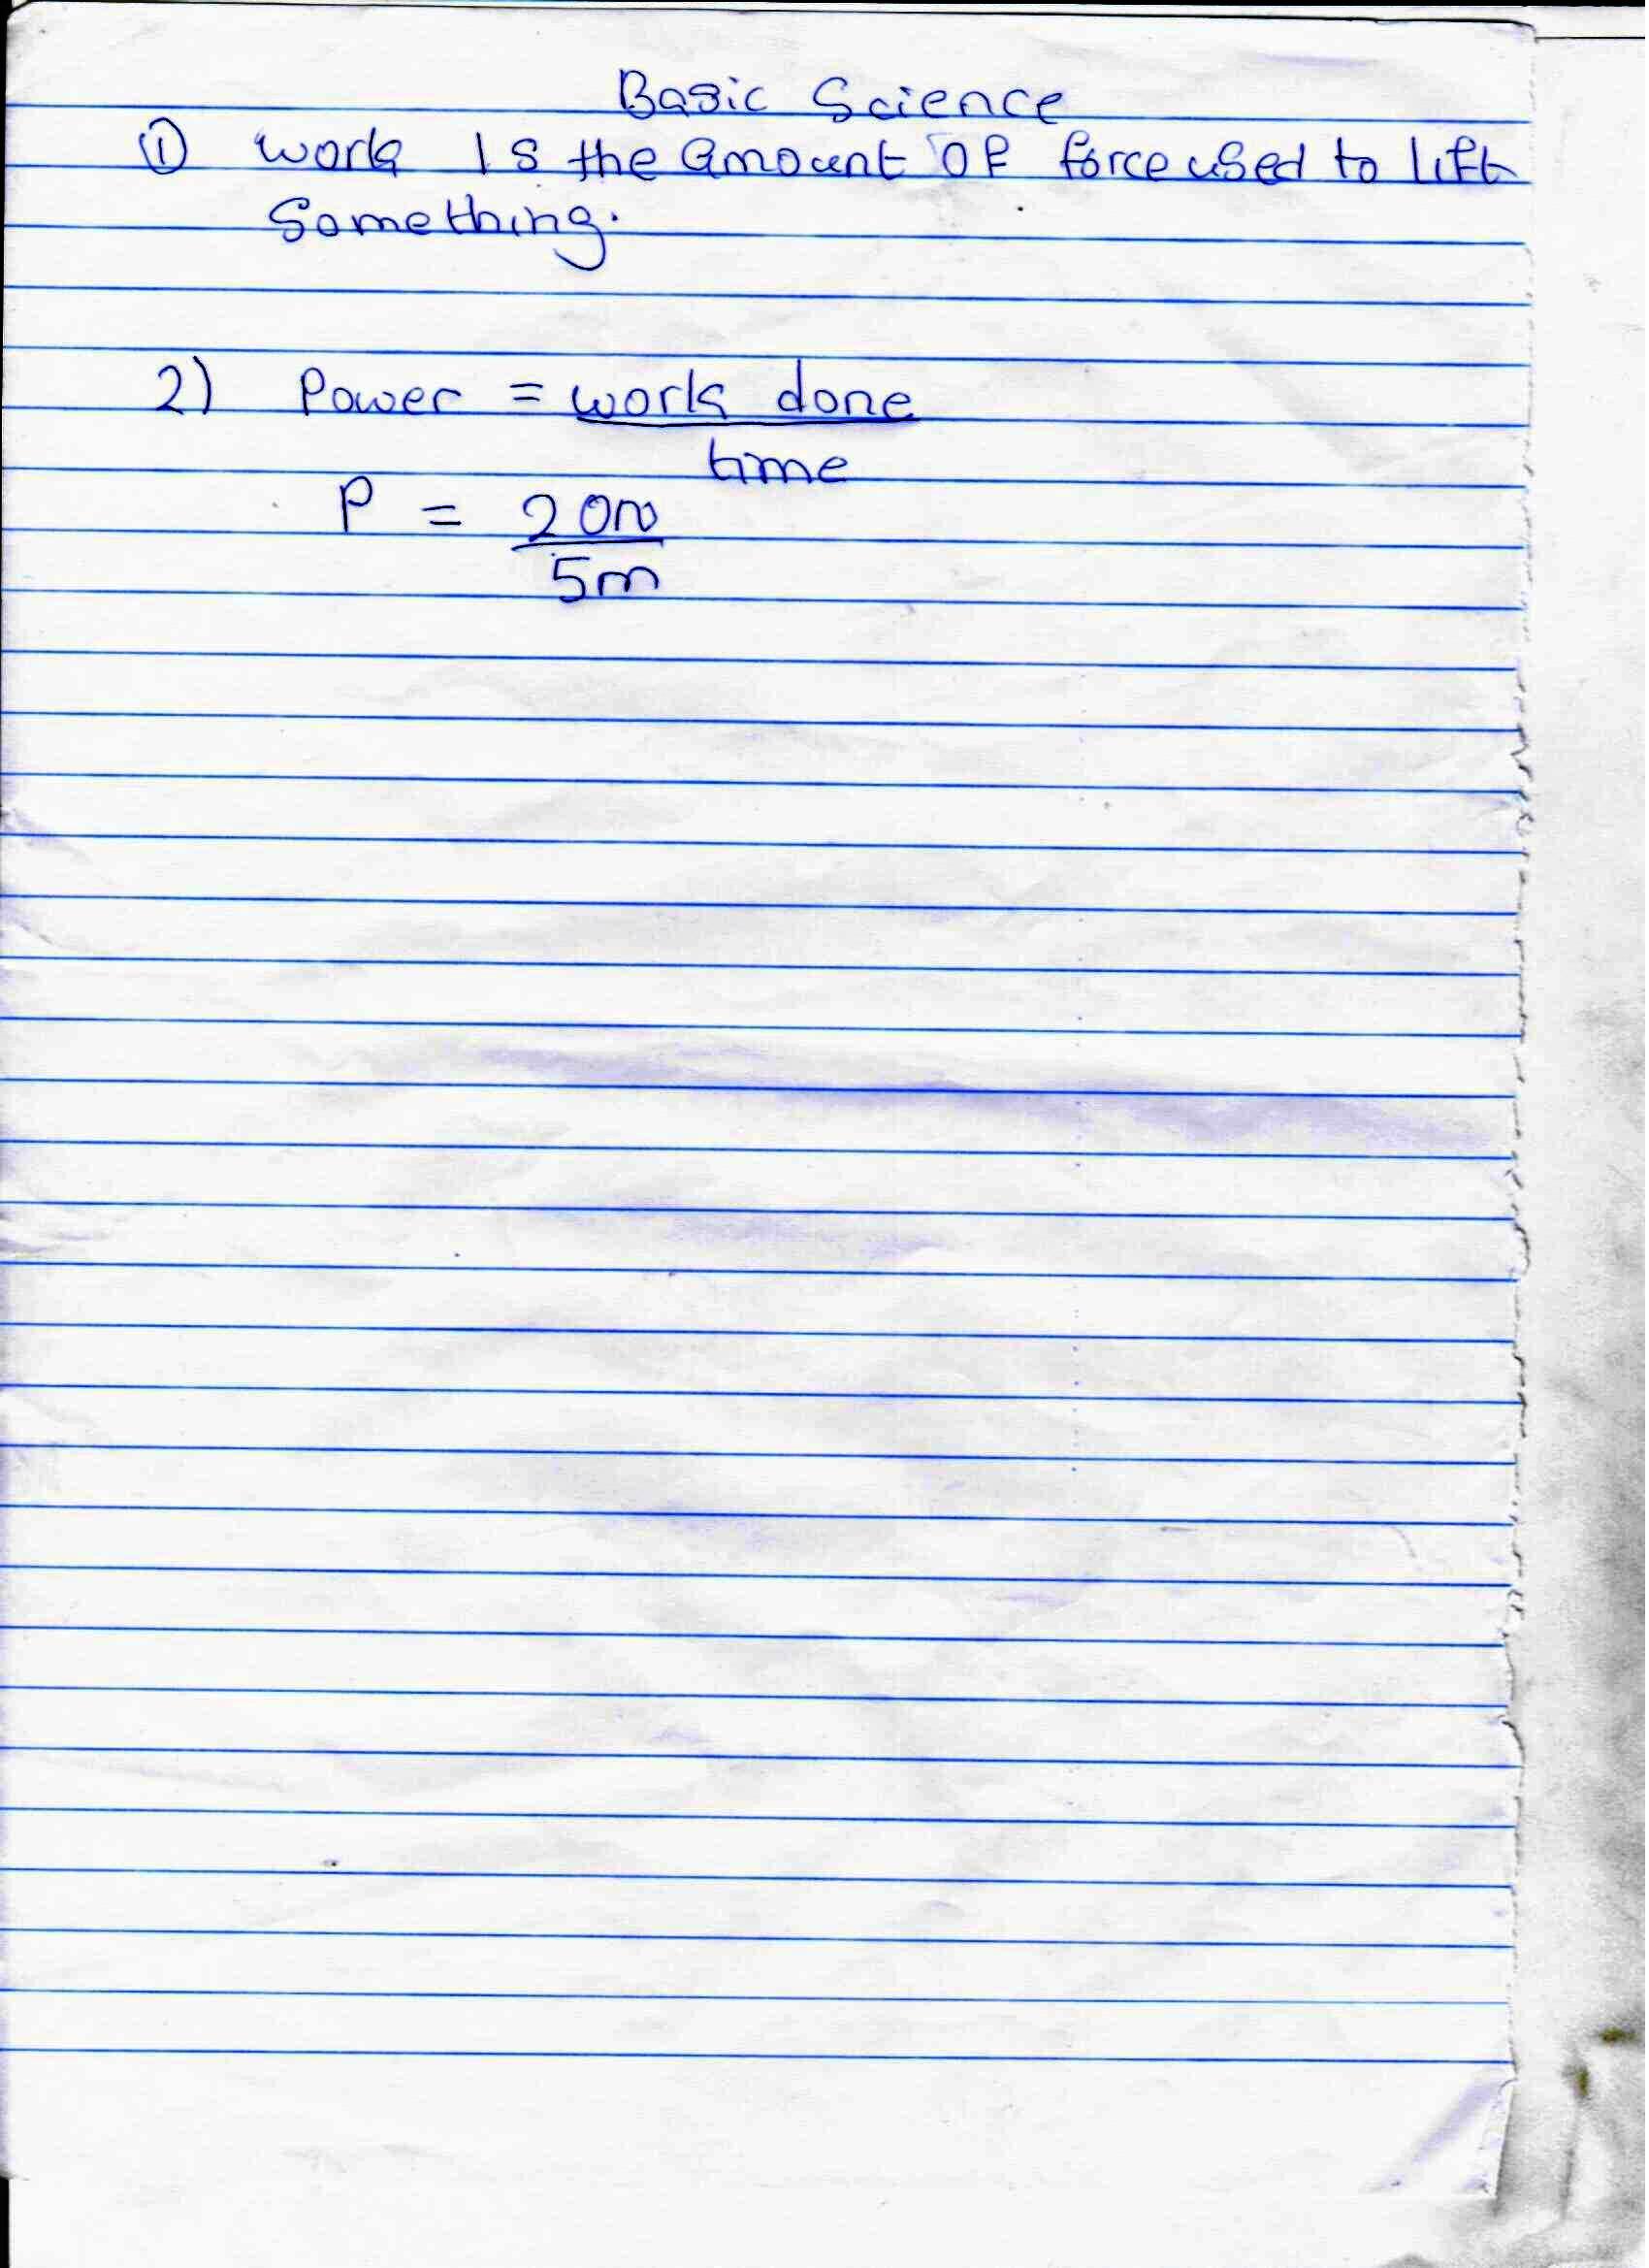 Basic Science
① work is the amount of force used to lift
Something.
2) Power = work done
time
P = 20N
5m